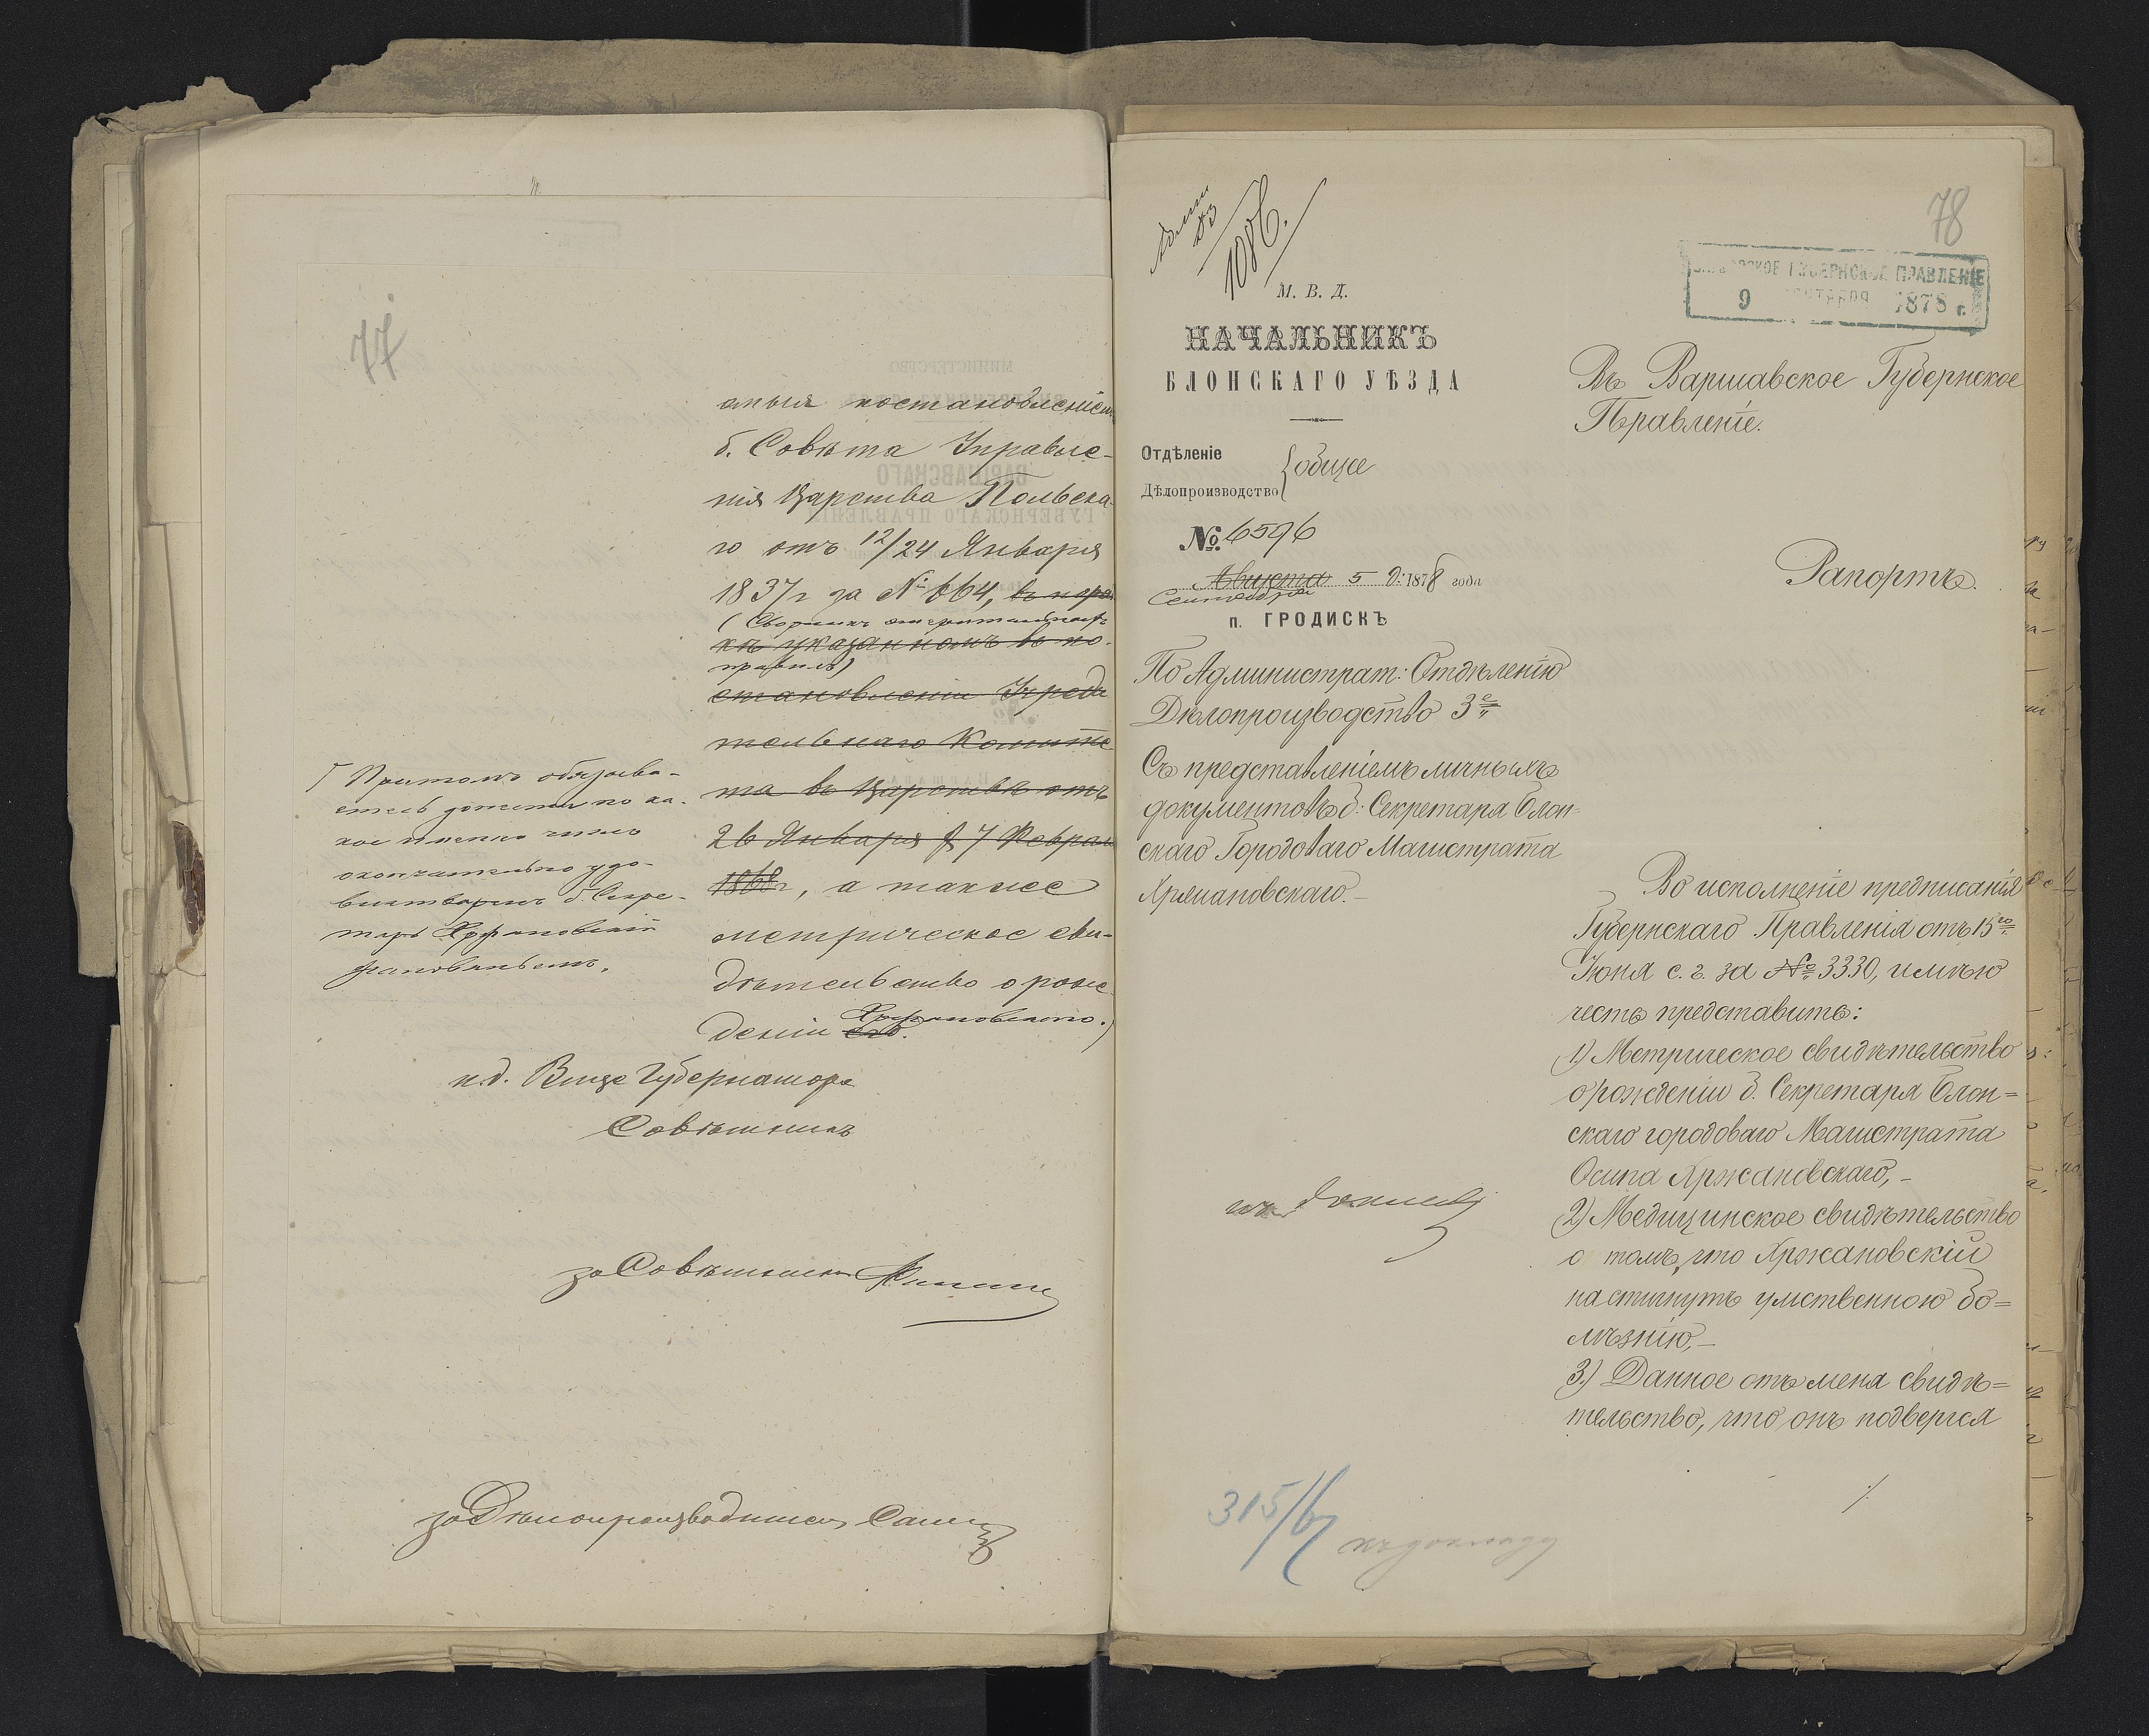 77
аныя постановленіемъ
б. Совѣта Управле-
нія Царства Польска-
го отъ 12/24 Января
1837 г за № 664, въ поряд
(Сборникъ эмеритальныхъ
кѣ указанномъ въ по-
правилъ)
становленіи Учреди
тельнаго Комите
та въ Царствѣ отъ
26 Января / 7 Феврал
1868 г, а также
метрическое сви-
дѣтельство о рож-
Хржановскаго.)
деніи его.
Притомъ обязыва-
етесь донести по ка-
кое именно число
окончательно удо-
влетворенъ б. Секре-
тарь Хржановскій
жалованьемъ.
и.д. Вице Губернатора
Совѣтникъ
за Совѣтника
за Дѣлопроизводителя
78
1086.
ВАРШАВСКОЕ ГУБЕРНСКОЕ ПРАВЛЕНІЕ
9 СЕНТЯБРЯ 1878 г.
М. В. Д.
НАЧАЛЬНИКЪ
БЛОНСКАГО УѢЗДА
Отдѣленіе
Дѣлопроизводство } общее
№ 6596
Августа 5 д: 1878 года
Сентября
п. ГРОДИСКЪ
По Администрат: Отдѣленію
Дѣлопроизводство 3е
Съ представленіемъ личныхъ
документовъ б: Секретаря Блон-
скаго Городоваго Магистрата
Хржановскаго.–
къ докладу
315/6
къ докладу
Въ Варшавское Губернское
Правленіе.
Рапортъ.
Во исполненіе предписанія
Губернскаго Правленія отъ 15го
Іюня с. г. за № 3330, имѣю
честь представить:
1) Метрическое свидѣтельство
о рожденіи б. Секретаря Блон=
скаго городоваго Магистрата
Осипа Хржановскаго,–
2) Медицинское свидѣтельство
о томъ, что Хржановскій
настигнутъ умственною бо=
лѣзнію,–
3) Данное отъ меня свидѣ=
тельство, что онъ подвергся